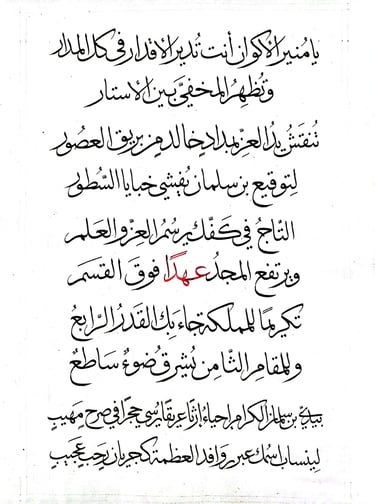 يا منير الأكوان أنت تُدير الأقدار في كل المدار
وتُظهِرُ المخفيَّ بين الأستار
تُنقَشُ يدُ العزِ بمدادٍ خالد من بريق العصور
لِتوقيع بن سلمان يُفشي خبايا السُّطور
التّاجُ في كَفّك يرسُمُ العِزَّ والعَلَم
ويرتفع المجدُ عهدًا فوقَ القَسَم
تكريمًا للمملكة جاء بِكَ القَدَرُ الرّابعُ
وللمقامِ الثّامن يُشرقُ ضُوءٌ ساطعٌ
بيديّ بن سلمان الكرام احياءُ ارثًا عريقًا يُرسي حجرًا في صرحٍ مَهيبٍ
لِينساب اسمُك عبر روافد العظمة كجريان رَحبٍ عَجيبٍ